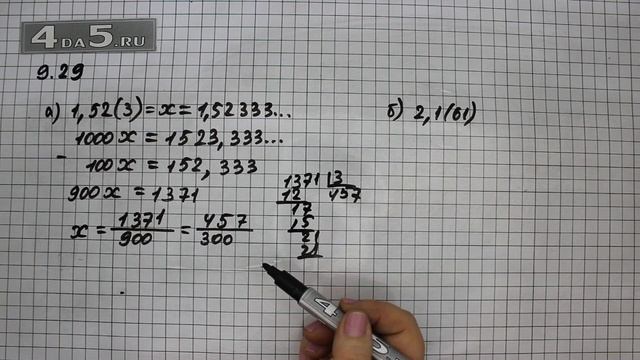 4DA5.RU
9.29
а) 1,52(3)=x=1,52333...
1000x = 1523,333...
- 100x = 152,333
900x = 1371
x = 1371/900 = 457/300
1371 | 3
12 457
17
15
21
21
б) 2,1(61)